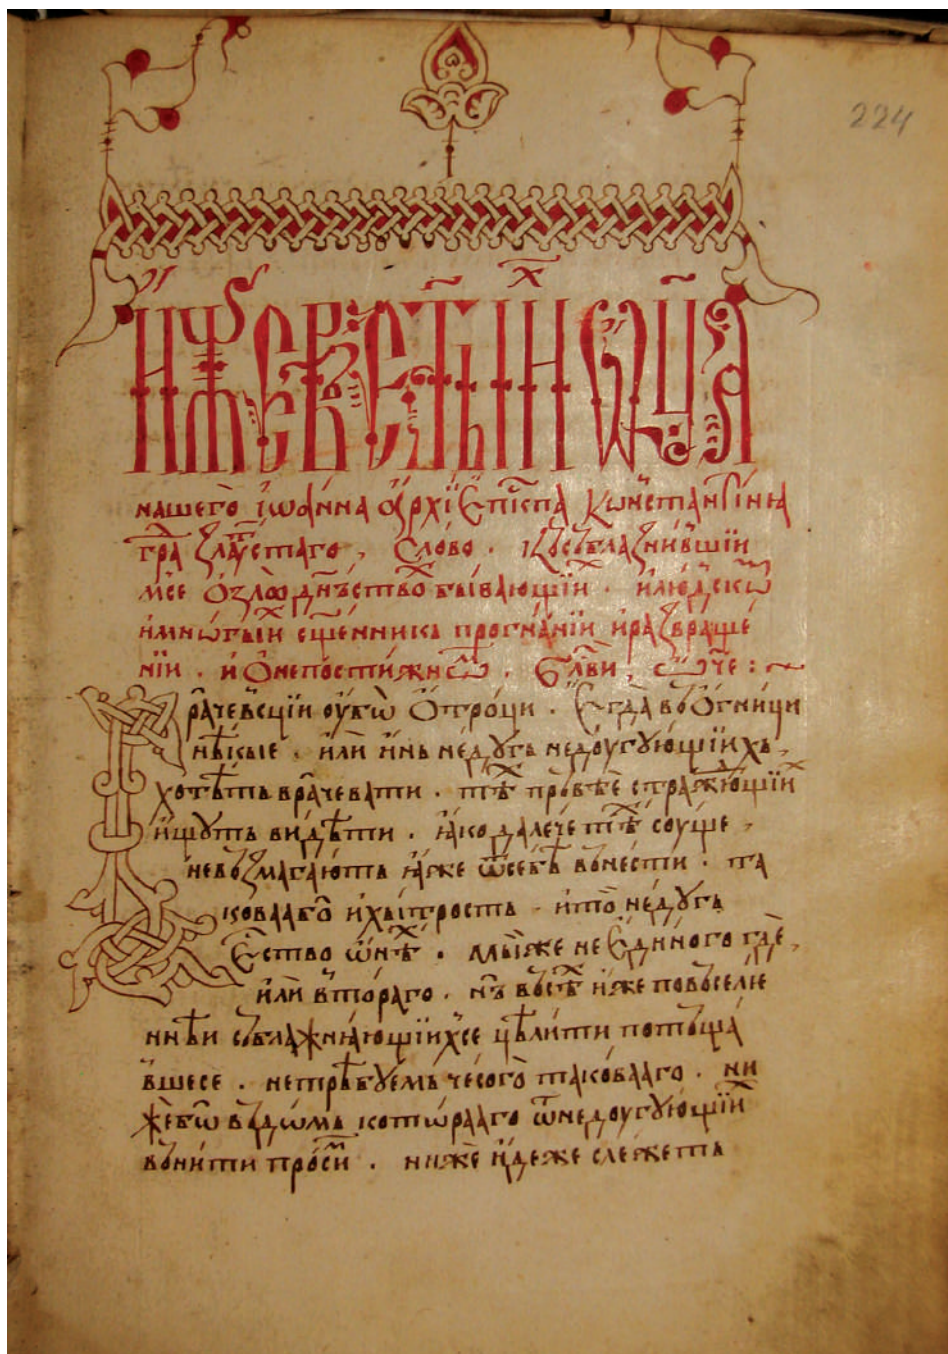 224
иже въ ст҃ыⷯ ѿц҃а
нашего̀ і҆ѡа́нна а҆рхїе҆пі́скпа кѡнстантїнꙗ
гра́ зла́ⷮꙋстаго , сло́во . къ съблазни́вшїи
мсе ѡ҆ ѕло дн҃ъствоⷯ быва́ющїиⷯ . и҆ лю́дскѡⷨ
и҆ мнѡ́гыиⷯ сщ҃е́нникь прогна́нїи и҆ развраще́
нїи . и҆ ѡ҆ непостижнѡⷨ . бл҃ви , ѿч҃е :~
Врачевсцїи ᲂу҆́бѡ ѻ҆́троци . є҆гда̀ въ ѻ҆гни́ци
нѣ́кыѥ . и҆лѝ и҆́нь неду́гь недоугу́ющїихь ,
хотѣ́ть врачева́ти . тѣⷯ пръвѣ́е стражⷣю́щїиⷯ
и҆́щуть ви́дѣти . ꙗ҆́ко дале́че тѣⷯ соу́ще ,
не възмага́ють ꙗ҆́же ѿ себѣ̀ въне́сти . та
кова́а бо̀ и҆ хы́трость . и҆ то̀ неду́гь
є҆ство ѡ҆нѣⷯ . мы́ же не є҆ди́ного гдѐ ,
и҆лѝ вто́раго . нъ̀ въсѣⷯ и҆́же по въселе́нѣ
нѣ́и съблажнꙗ́ющїихсе цѣли́ти потъща́
вшесе . не трѣ́буемь чесого̀ такова́аго . ни
же̂ бѡ̀ въ дѡ́мь котѡ́рааго ѿ недоугу́ющїиⷯ
въни́ти про́симⷨ . ни́же и҆де́же сле́жеть